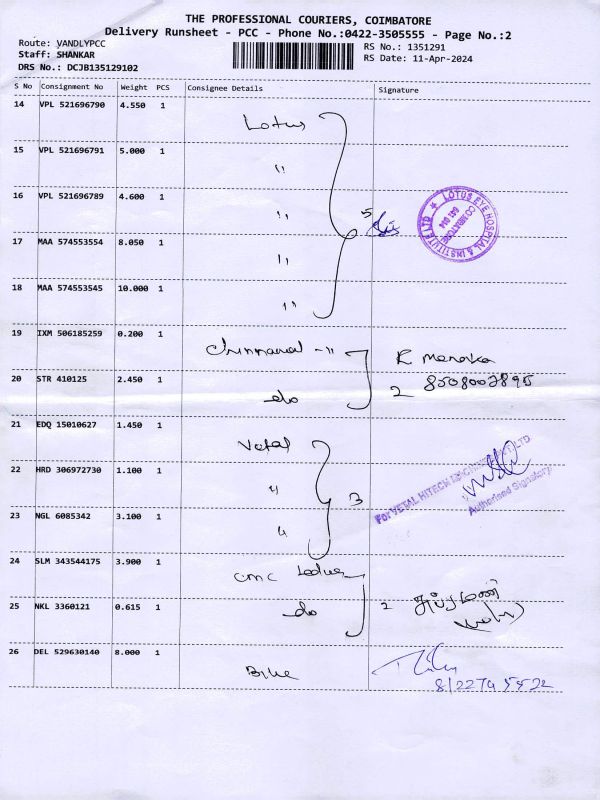 THE PROFESSIONAL COURIERS, COIMBATORE
Delivery Runsheet - PCC - Phone No.:0422-3505555 - Page No.:2
Route: VANDLYPCC
Staff: SHANKAR
DRS No.: DCJB135129102
RS No.: 1351291
RS Date: 11-Apr-2024
S No Consignment No Weight PCS Consignee Details Signature
14 VPL 521696790 4.550 1 Lotus
15 VPL 521696791 5.000 1 "
16 VPL 521696789 4.600 1 " 5
LOTUS EYE HOSPITAL & INSTITUTE LTD ★
COIMBATORE
641 014
17 MAA 574553554 8.050 1 "
18 MAA 574553545 10.000 1 "
19 IXM 506185259 0.200 1 R Menaka
20 STR 410125 2.450 1 do 2 8508002895
21 EDQ 15010627 1.450 1 Vetal
22 HRD 306972730 1.100 1 " 3
For VETAL HITECH (P) LTD
Authorised Signatory
23 NGL 6085342 3.100 1 "
24 SLM 343544175 3.900 1 CMC
25 NKL 3360121 0.615 1 do 2
26 DEL 529630140 8.000 1